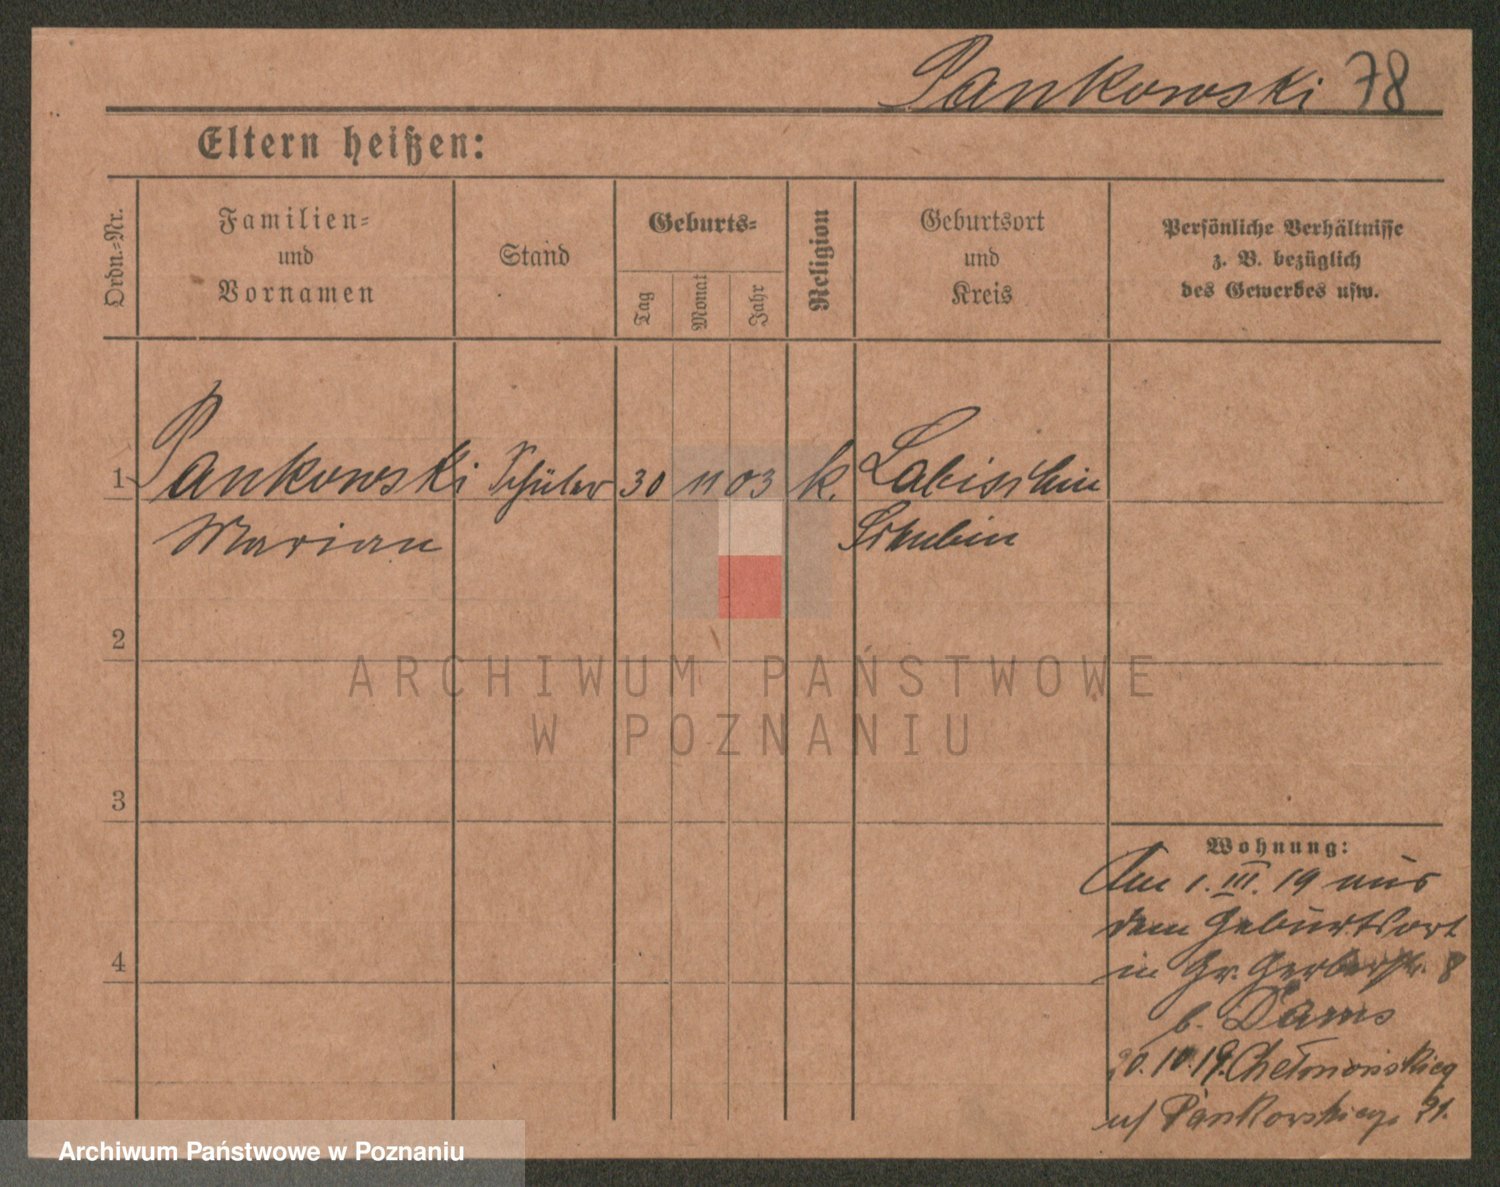 Pankowski 78
Eltern heißen:
Ordn.=Nr.
Familien=
und
Vornamen
Stand
Geburts=
Tag
Monat
Jahr
Religion
Geburtsort
und
Kreis
Persönliche Verhältnisse
z. B. bezüglich
des Gewerbes usw.
1 Pankowski Schüler 30 11 03 k. Labischin
Marian Schubin
2
ARCHIWUM PAŃSTWOWE
W POZNANIU
3
Wohnung:
Am 1. III. 19 aus
dem Geburtsort
4
in Gr. Gerberstr. 8
b. Dams
20.10.19. Chełmońskiego
u/ Pankowskiego 21.
Archiwum Państwowe w Poznaniu